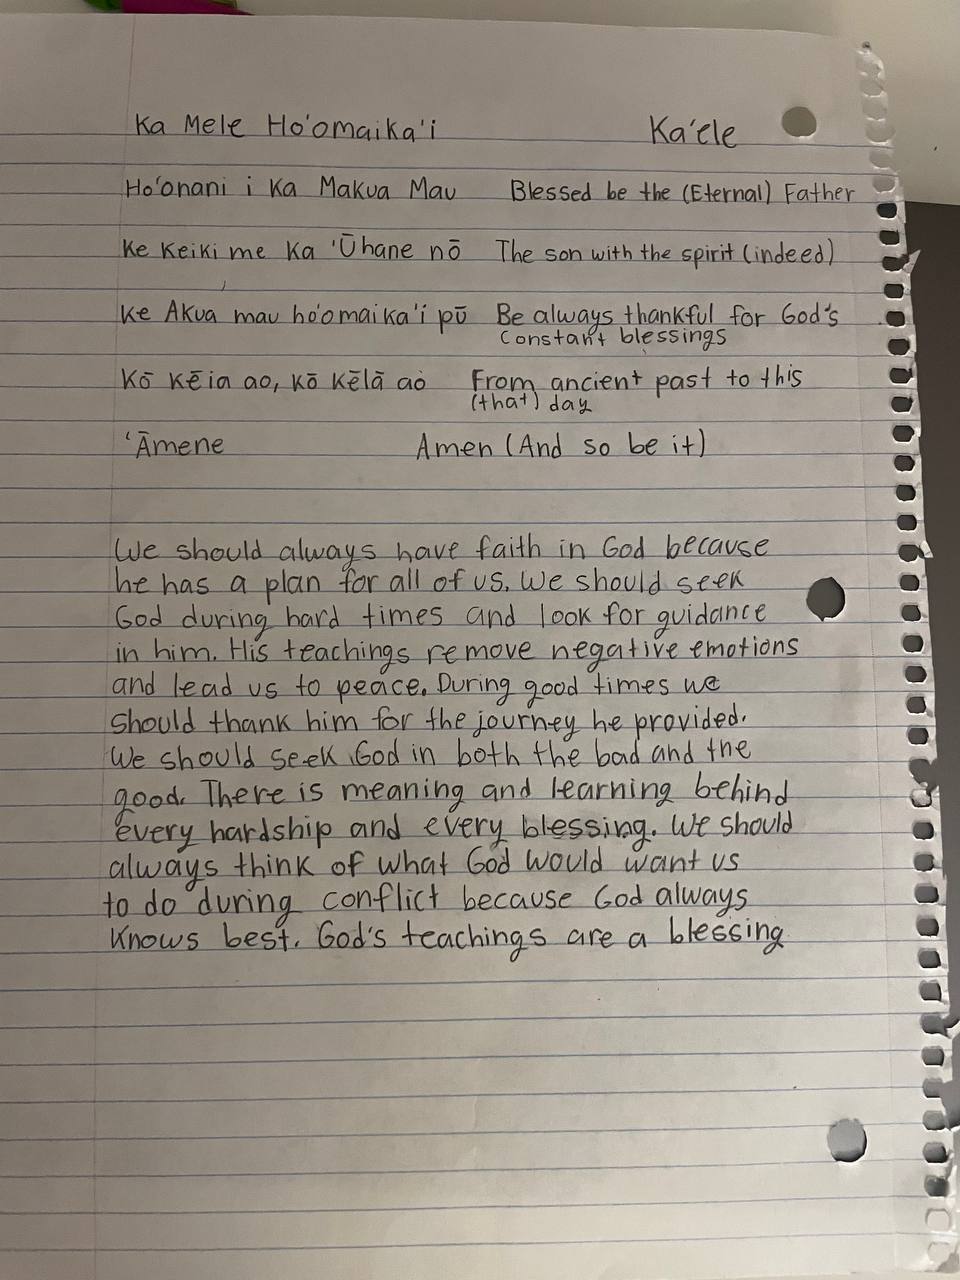 Ka Mele Ho'omaika'i Ka'ele
Ho'onani i Ka Makua Mau Blessed be the (Eternal) Father
Ke Keiki me Ka 'Ūhane nō The son with the spirit (indeed)
Ke Akua mau ho'omaika'i pū Be always thankful for God's
constant blessings
Kō Kēia ao, kō Kēlā ao From ancient past to this
(that) day
'Āmene Amen (And so be it)
We should always have faith in God because
he has a plan for all of us. We should seek
God during hard times and look for guidance
in him. His teachings remove negative emotions
and lead us to peace. During good times we
should thank him for the journey he provided.
We should seek God in both the bad and the
good. There is meaning and learning behind
every hardship and every blessing. We should
always think of what God would want us
to do during conflict because God always
knows best. God's teachings are a blessing